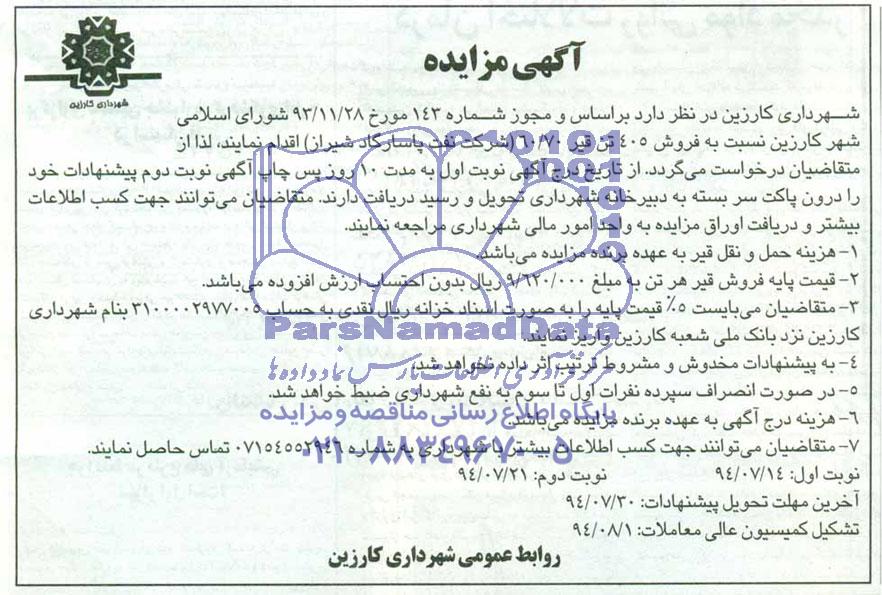 آگهی مزایده
شهرداری کارزین
شهرداری کارزین در نظر دارد براساس و مجوز شماره ۱۴۳ مورخ ۹۳/۱۱/۲۸ شورای اسلامی
شهر کارزین نسبت به فروش ۴۰۵ تن قیر ۶۰/۷۰ (شرکت نفت پاسارگاد شیراز) اقدام نمایند، لذا از
متقاضیان درخواست می‌گردد. از تاریخ درج آگهی نوبت اول به مدت ۱۰ روز پس چاپ آگهی نوبت دوم پیشنهادات خود
را درون پاکت سر بسته به دبیرخانه شهرداری تحویل و رسید دریافت دارند. متقاضیان می‌توانند جهت کسب اطلاعات
بیشتر و دریافت اوراق مزایده به واحد امور مالی شهرداری مراجعه نمایند.
۱- هزینه حمل و نقل قیر به عهده برنده مزایده می‌باشد.
۲- قیمت پایه فروش قیر هر تن به مبلغ ۹/۶۲۰/۰۰۰ ریال بدون احتساب ارزش افزوده می‌باشد.
۳- متقاضیان می‌بایست ۵٪ قیمت پایه را به صورت اسناد خزانه ریال نقدی به حساب ۳۱۰۰۰۰۲۹۷۷۰۰۵ بنام شهرداری
ParsNamadData
کارزین نزد بانک ملی شعبه کارزین واریز نمایند.
۴- به پیشنهادات مخدوش و مشروط ترتیب اثر داده نخواهد شد.
مرکز فرآوری اطلاعات پارس نماد داده‌ها
۵- در صورت انصراف سپرده نفرات اول تا سوم به نفع شهرداری ضبط خواهد شد.
پایگاه اطلاع رسانی مناقصه و مزایده
۶- هزینه درج آگهی به عهده برنده مزایده می‌باشد.
۰۲۱-۸۸۳۴۹۶۷۰-۵
۷- متقاضیان می‌توانند جهت کسب اطلاعات بیشتر با شهرداری به شماره ۰۷۱۵۴۵۵۲۹۴۶ تماس حاصل نمایند.
نوبت اول: ۹۴/۰۷/۱۴ نوبت دوم: ۹۴/۰۷/۲۱
آخرین مهلت تحویل پیشنهادات: ۹۴/۰۷/۳۰
تشکیل کمیسیون عالی معاملات: ۹۴/۰۸/۱
روابط عمومی شهرداری کارزین